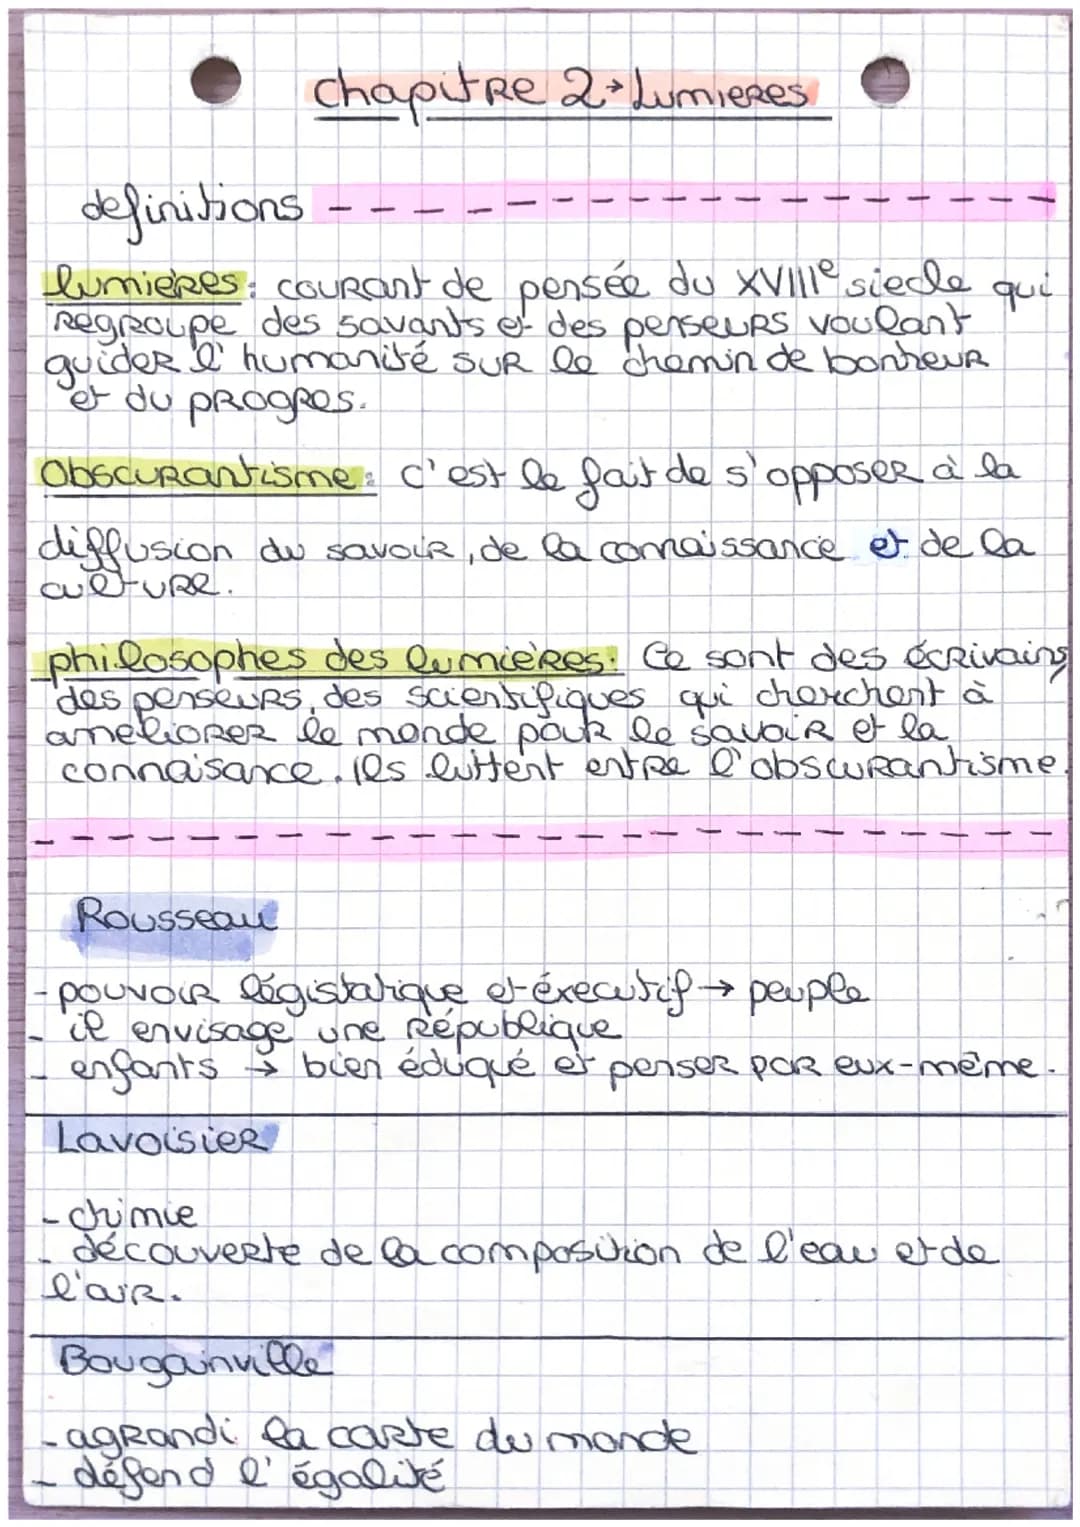 chapitre 2→Lumieres
definitions
lumières: courant de pensée du XVIIIe siecle qui
regroupe des savants et des penseurs voulant
guider l'humanité sur le chemin de bonheur
et du progres.
Obscurantisme: c'est le fait de s'opposer à la
diffusion du savoir, de la connaissance et de la
culture.
philosophes des lumières: Ce sont des écrivains
des penseurs, des scientifiques qui cherchent à
ameliorer le monde pour le savoir et la
connaisance. Ils luttent entre l'obscurantisme.
Rousseau
- pouvoir légistatique et éxecutif → peuple
- il envisage une République
- enfants → bien éduqué et penser par eux-même.
Lavoisier
- chimie
- découverte de la composition de l'eau et de
l'air.
Bougainville
- agrandi la carte du monde
- défend l'égalité